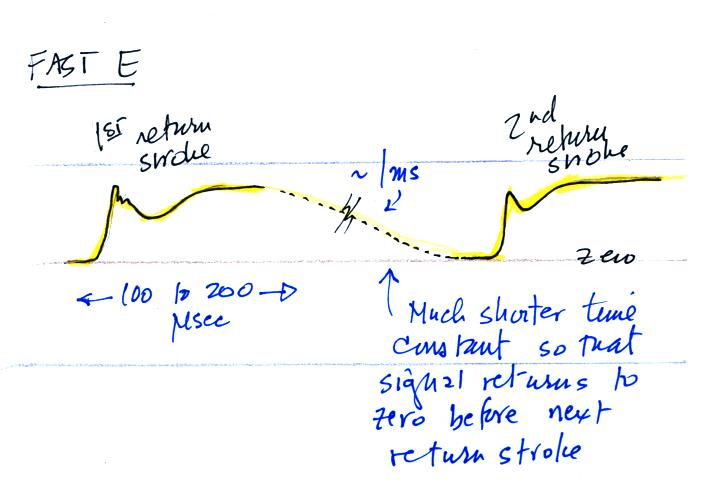 FAST E
1st return
stroke
2nd
return
stroke
~ 1ms
zero
← 100 to 200 →
μsec
Much shorter time
constant so that
signal returns to
zero before next
return stroke